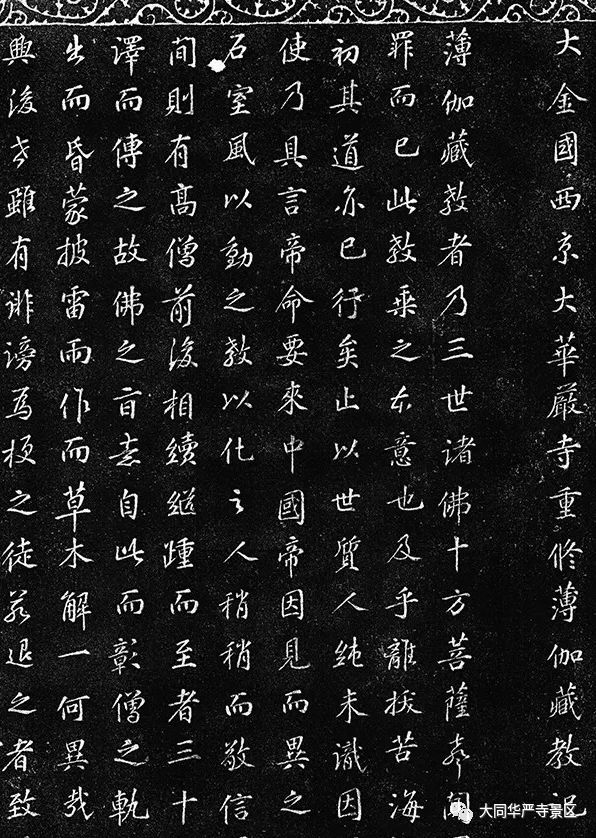 大金國西京大華嚴寺重修薄伽藏教記
薄伽藏教者乃三世諸佛十方菩薩聲聞
罪而已此教乘之本意也及乎離拔苦海
初其道亦已行矣止以世質人純未識因
使乃具言帝命要來中國帝因見而異之
石室風以動之教以化之人稍稍而敬信
間則有高僧前後相續繼踵而至者三十
譯而傳之故佛之旨意自此而彰僧之軌
出而昏蒙披雷雨作而草木解一何異哉
興後世雖有誹謗為梗之徒若退之者致
大同华严寺景区